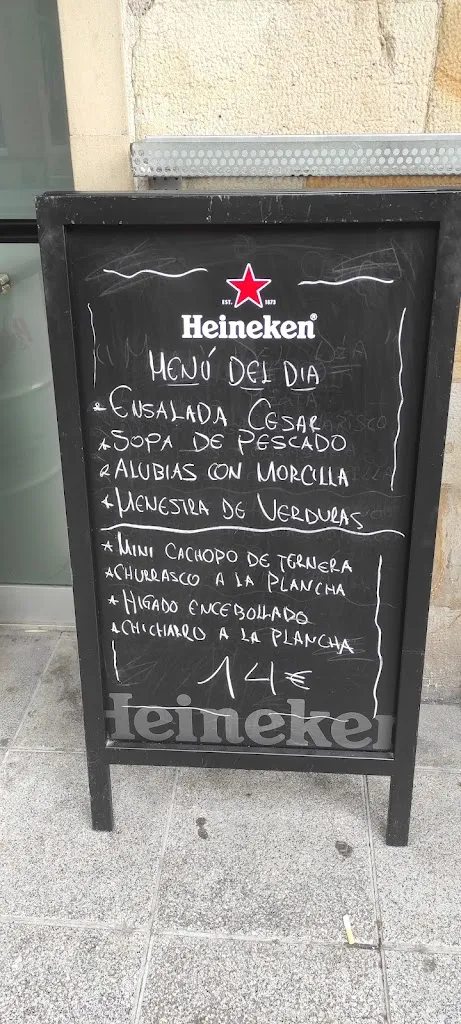 EST. 1873
Heineken®
MENÚ DEL DIA
* ENSALADA CESAR
* SOPA DE PESCADO
* ALUBIAS CON MORCILLA
* MENESTRA DE VERDURAS
* MINI CACHOPO DE TERNERA
* CHURRASCO A LA PLANCHA
* HIGADO ENCEBOLLADO
* CHICHARRO A LA PLANCHA
14€
Heineken